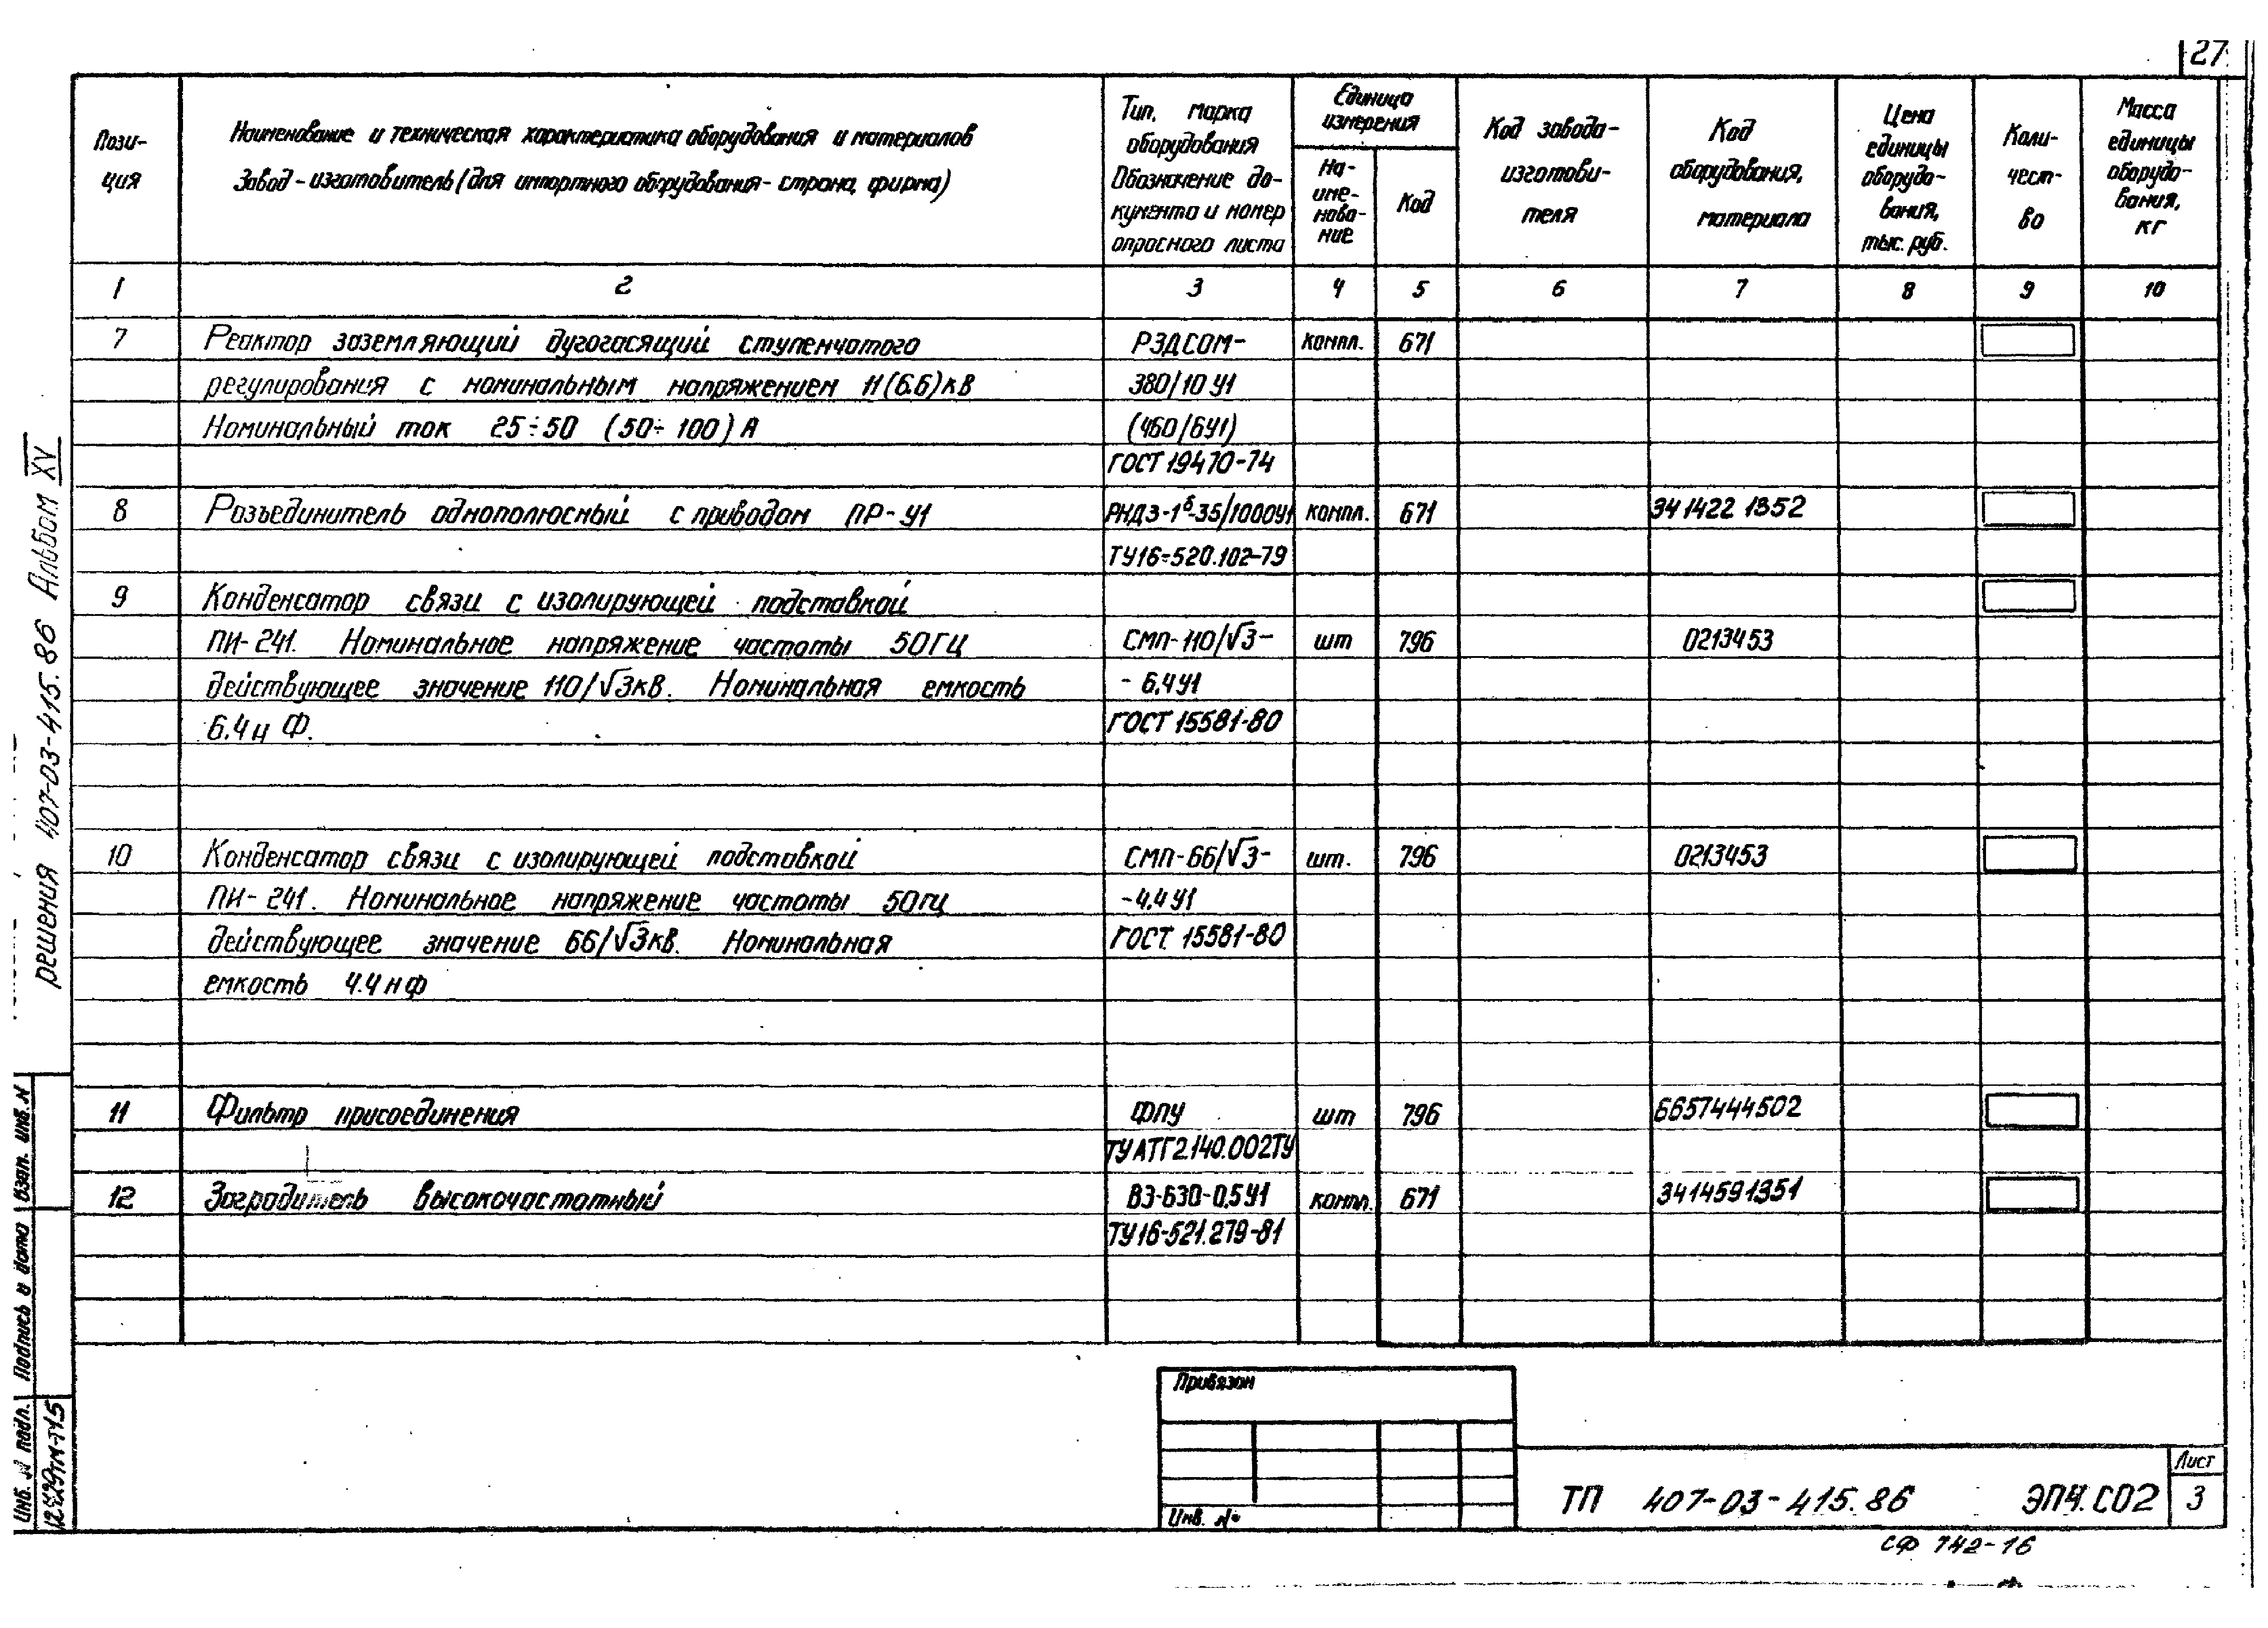 27
Пози-
ция
Наименование и техническая характеристика оборудования и материалов
Завод-изготовитель (для импортного оборудования-страна, фирма)
Тип, марка
оборудования
Обозначение до-
кумента и номер
опросного листа
Единица
измерения
На-
име-
нова-
ние
Код
Код завода-
изготови-
теля
Код
оборудования,
материала
Цена
единицы
оборудо-
вания,
тыс. руб.
Коли-
чест-
во
Масса
единицы
оборудо-
вания,
кг
1 2 3 4 5 6 7 8 9 10
7 Реактор заземляющий дугогасящий ступенчатого РЗДСОМ- компл. 671
регулирования с номинальным напряжением 11(6.6)кВ 380/10 У1
Номинальный ток 25÷50 (50÷100) А (460/6У1)
ГОСТ 19470-74
8 Разъединитель однополюсный с приводом ПР-У1 РНДЗ-1б-35/1000У1 компл. 671 341422 1352
ТУ16-520.102-79
9 Конденсатор связи с изолирующей подставкой
ПИ-241. Номинальное напряжение частоты 50ГЦ СМП-110/√3- шт 796 0213453
действующее значение 110/√3кВ. Номинальная емкость - 6,4У1
6.4н Ф. ГОСТ 15581-80
10 Конденсатор связи с изолирующей подставкой СМП-66/√3- шт. 796 0213453
ПИ-241. Номинальное напряжение частоты 50гц -4,4У1
действующее значение 66/√3кВ. Номинальная ГОСТ 15581-80
емкость 4.4нФ
11 Фильтр присоединения ФПУ шт 796 6657444502
ТУАТГ2.140.002ТУ
12 Заградитель высокочастотный ВЗ-630-0,5У1 компл. 671 3414591351
ТУ16-521.279-81
решения 407-03-415.86 Альбом XV
Инв. N подл. Подпись и дата Взам. инв. N
12429тм-т15
Привязан
Инв. №
ТП 407-03-415.86 ЭП4.СО2
Лист
3
СФ 742-16